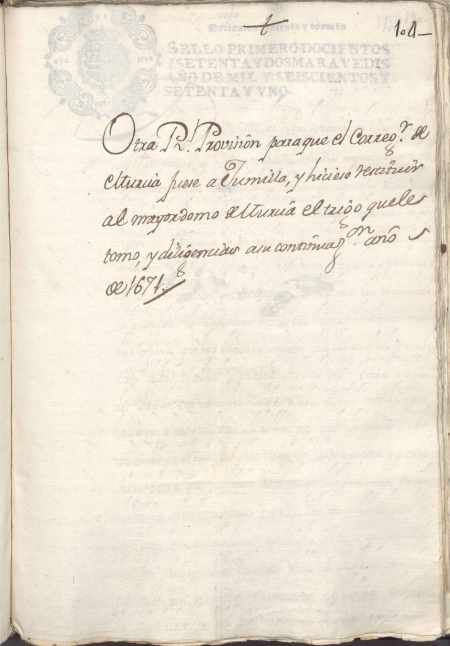 1.4
SELLO PRIMERO DOCIENTOS
Y SETENTA Y DOS MARAVEDIS
AÑO DE MIL Y SEISCIENTOS Y
SETENTA Y VNO
Otra Rl. Provision para que el Correogr. de
Murcia fuese a Jumilla, y hiciese restitucion
al mayordomo de Murcia el trigo que les
tomo, y diligencias a su continuagon. año
de 1671